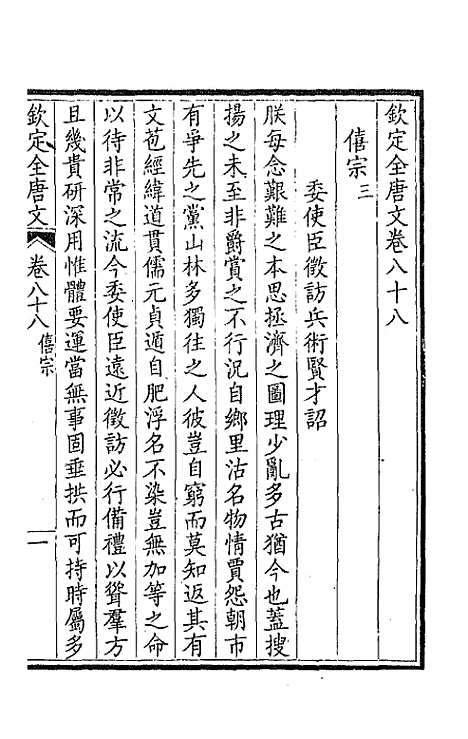 欽定全唐文卷八十八
僖宗三
委使臣徵訪兵術賢才詔
朕每念艱難之本思拯濟之圖理少亂多古猶今也蓋搜
揚之未至非爵賞之不行況自鄉里沽名物情賈怨朝市
有爭先之黨山林多獨往之人彼豈自窮而莫知返其有
文苞經緯道貫儒元貞遁自肥浮名不染豈無加等之命
以待非常之流今委使臣遠近徵訪必行備禮以聳羣方
且幾貴研深用惟體要運當無事固垂拱而可持時屬多
欽定全唐文 卷八十八 僖宗 一